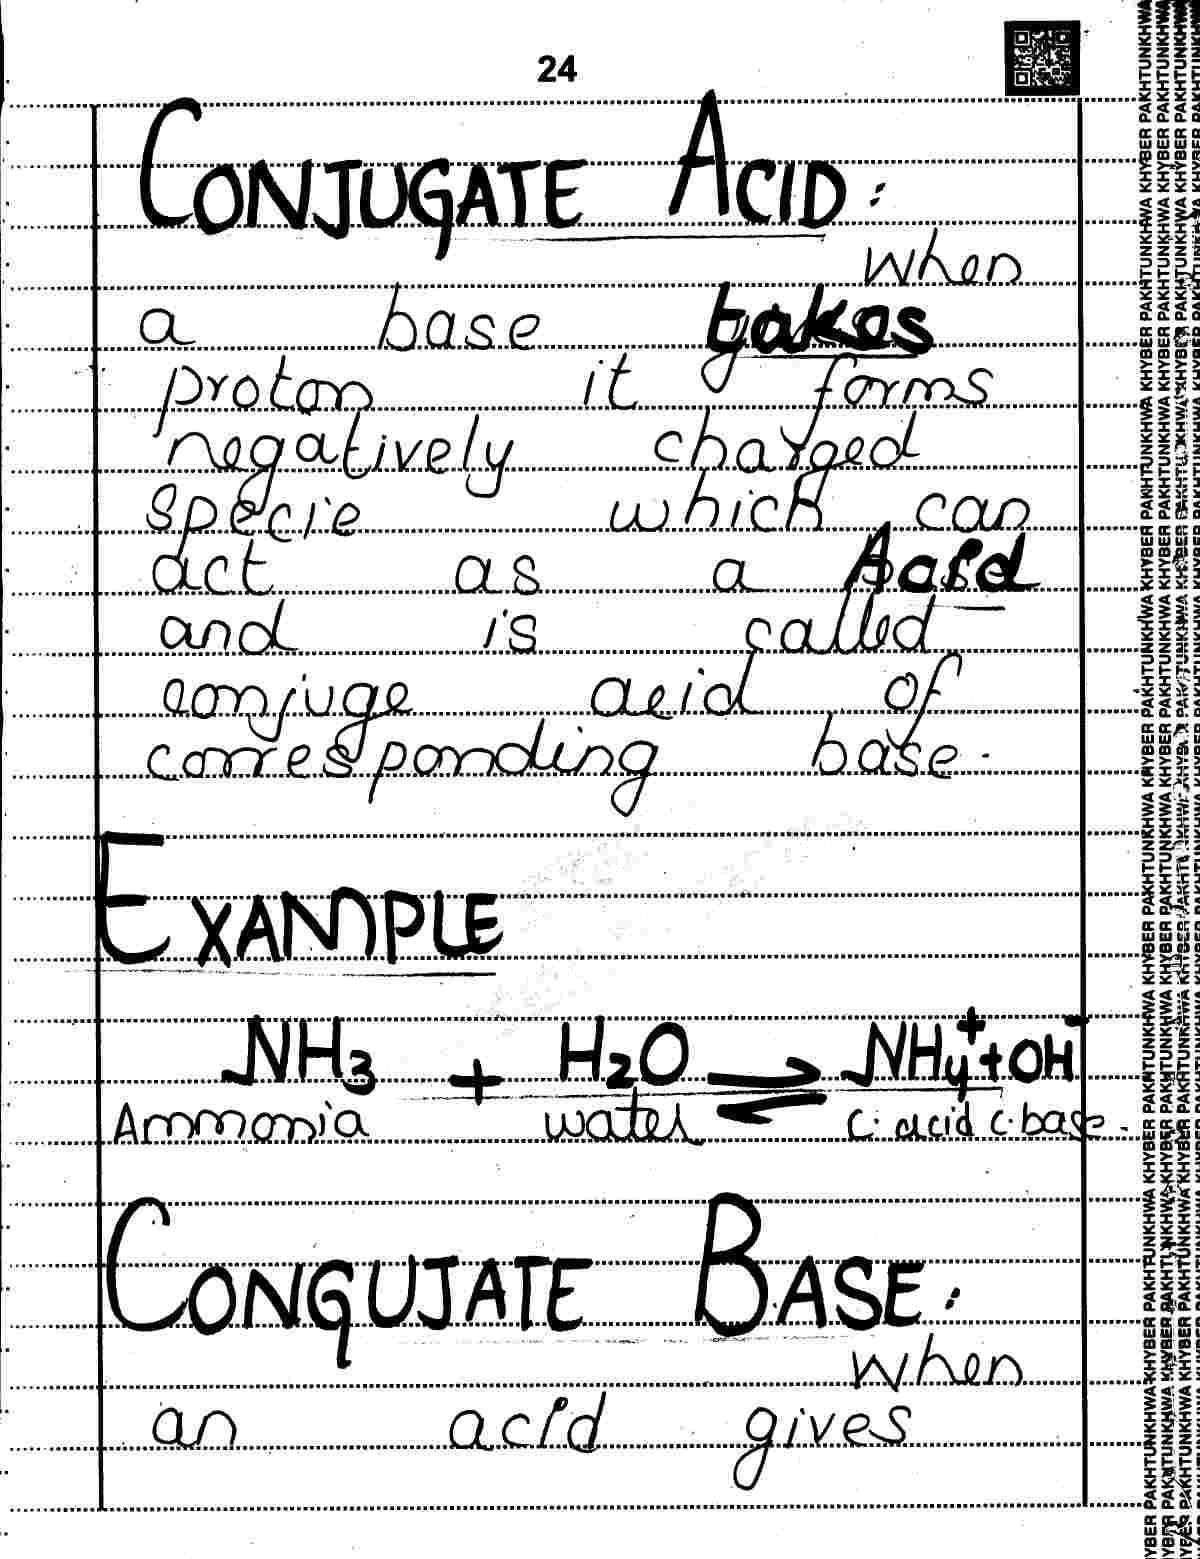 24
CONJUGATE ACID:
when
a base takes
proton it forms
negatively charged
specie which can
act as a Acid
and is called
conjuge acid of
corresponding base.
EXAMPLE
NH3 + H2O ⇌ NH4+ + OH-
Ammonia water c. acid c. base.
CONGUJATE BASE:
when
an acid gives
KHYBER PAKHTUNKHWA KHYBER PAKHTUNKHWA KHYBER PAKHTUNKHWA KHYBER PAKHTUNKHWA KHYBER PAKHTUNKHWA KHYBER PAKHTUNKHWA KHYBER PAKHTUNKHWA